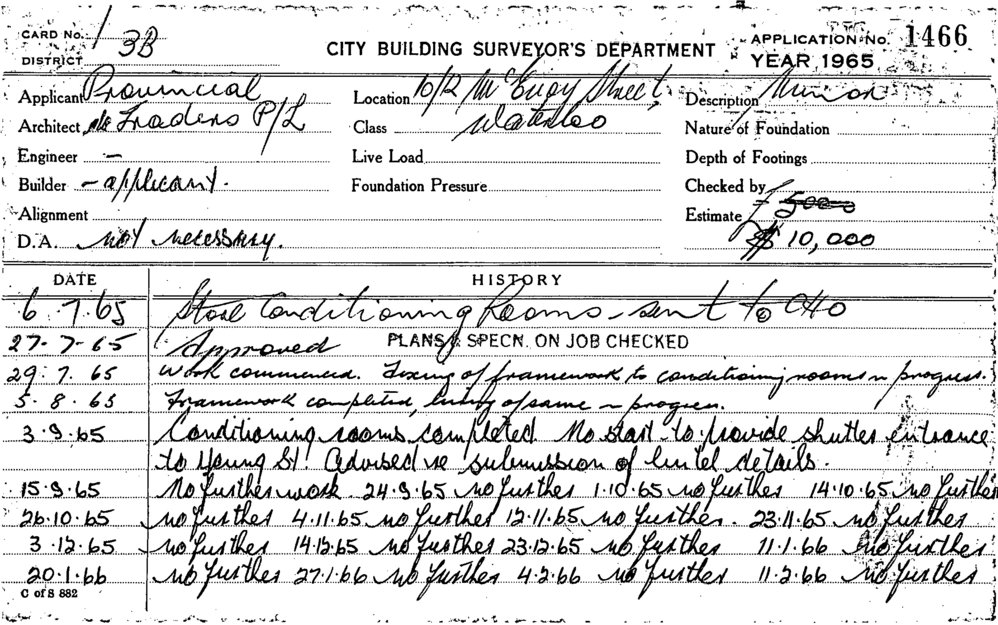 CARD No. 1
DISTRICT 3B
CITY BUILDING SURVEYOR'S DEPARTMENT
APPLICATION No. 1466
YEAR 1965
Applicant Provincial
Location 10/12 McEvoy Street,
Description Minor
Architect Traders P/L
Class Waterloo
Nature of Foundation
Engineer –
Live Load
Depth of Footings
Builder – applicant.
Foundation Pressure
Checked by
Alignment
Estimate £ 5000
D.A. Not necessary.
$ 10,000
DATE HISTORY
6.7.65 Store Conditioning Rooms – sent to CHO
27-7-65 Approved PLANS & SPECN. ON JOB CHECKED
29.7.65 Work commenced. Fixing of framework to conditioning rooms in progress.
5.8.65 Framework completed, lining of same in progress.
3.9.65 Conditioning rooms completed. No start to provide shutter entrance
to Young St. Advised re submission of lintel details.
15.9.65 No further work 24.9.65 no further 1.10.65 no further 14.10.65 no further
26.10.65 no further 4.11.65 no further 12.11.65 no further. 23.11.65 no further
3.12.65 no further 14.12.65 no further 23.12.65 no further 11.1.66 no further
20.1.66 no further 27.1.66 no further 4.2.66 no further 11.2.66 no further
C of S 882